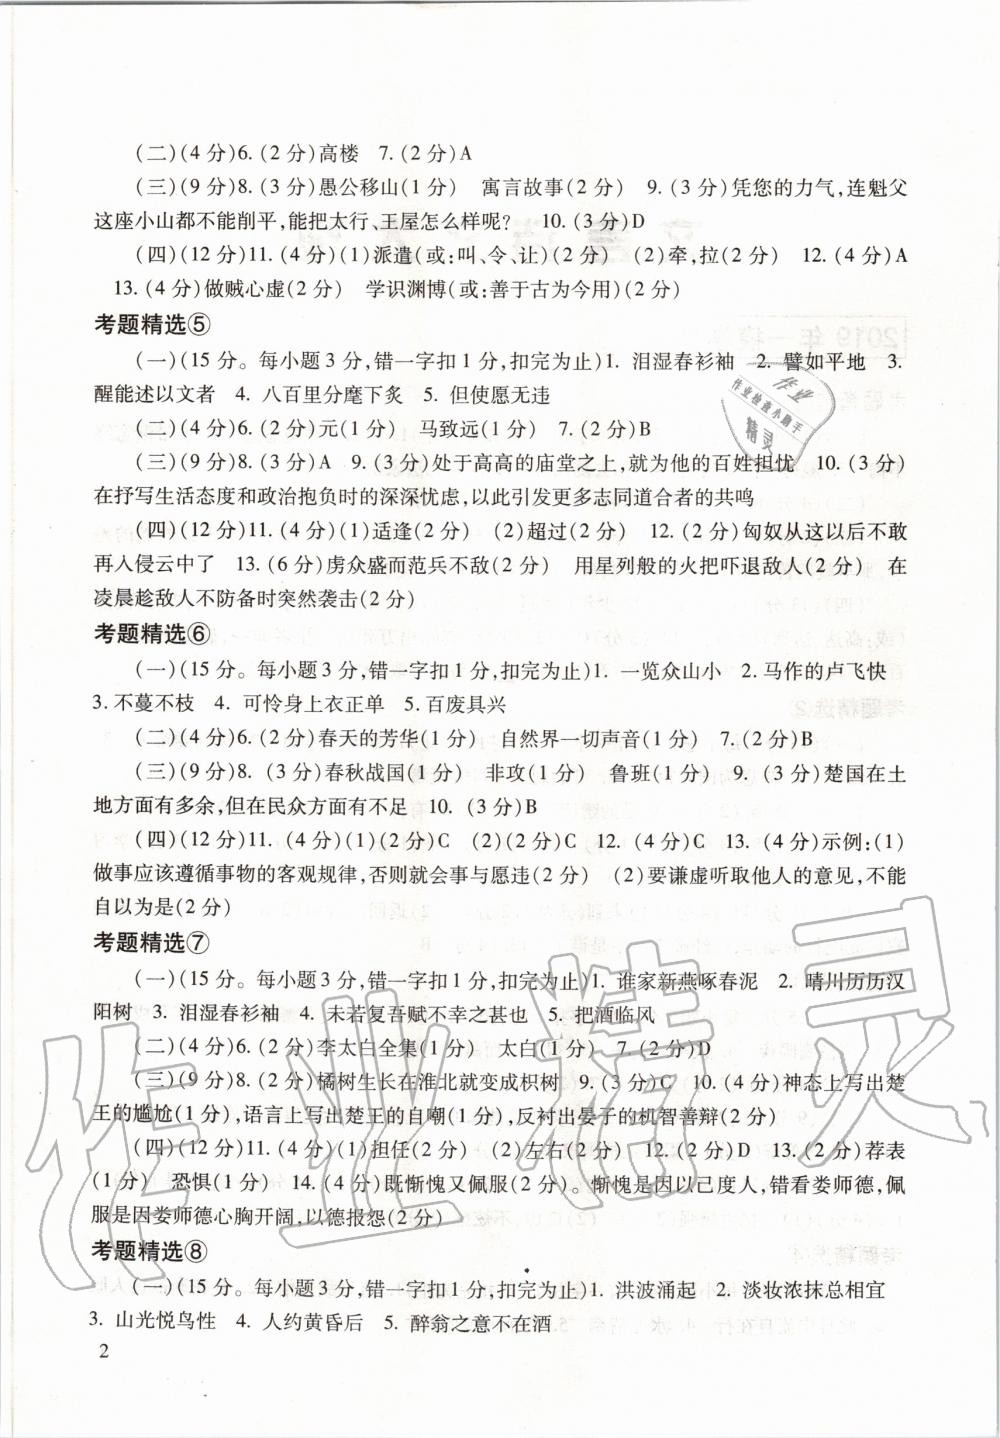 (二)(4分)6.(2分)高楼　7.(2分)A
(三)(9分)8.(3分)愚公移山(1分)　寓言故事(2分)　9.(3分)凭您的力气,连魁父
这座小山都不能削平,能把太行、王屋怎么样呢?　10.(3分)D
(四)(12分)11.(4分)(1)派遣(或:叫、令、让)(2分)　(2)牵,拉(2分)　12.(4分)A
13.(4分)做贼心虚(2分)　学识渊博(或:善于古为今用)(2分)
考题精选⑤
(一)(15分。每小题3分,错一字扣1分,扣完为止)1. 泪湿春衫袖　2. 譬如平地　3.
醒能述以文者　4. 八百里分麾下炙　5. 但使愿无违
(二)(4分)6.(2分)元(1分)　马致远(1分)　7.(2分)B
(三)(9分)8.(3分)A　9.(3分)处于高高的庙堂之上,就为他的百姓担忧　10.(3分)
在抒写生活态度和政治抱负时的深深忧虑,以此引发更多志同道合者的共鸣
(四)(12分)11.(4分)(1)适逢(2分)　(2)超过(2分)　12.(2分)匈奴从这以后不敢
再入侵云中了　13.(6分)虏众盛而范兵不敌(2分)　用星列般的火把吓退敌人(2分)　在
凌晨趁敌人不防备时突然袭击(2分)
考题精选⑥
(一)(15分。每小题3分,错一字扣1分,扣完为止)1. 一览众山小　2.马作的卢飞快
3.不蔓不枝　4. 可怜身上衣正单　5.百废具兴
(二)(4分)6.(2分)春天的芳华(1分)　自然界一切声音(1分)　7.(2分)B
(三)(9分)8.(3分)春秋战国(1分)　非攻(1分)　鲁班(1分)　9.(3分)楚国在土
地方面有多余,但在民众方面有不足　10.(3分)B
(四)(12分)11.(4分)(1)(2分)C　(2)(2分)C　12.(4分)C　13.(4分)示例:(1)
做事应该遵循事物的客观规律,否则就会事与愿违(2分)　(2)要谦虚听取他人的意见,不能
自以为是(2分)
考题精选⑦
(一)(15分。每小题3分,错一字扣1分,扣完为止)1. 谁家新燕啄春泥　2. 晴川历历汉
阳树　3. 泪湿春衫袖　4. 未若复吾赋不幸之甚也　5. 把酒临风
(二)(4分)6.(2分)李太白全集(1分)　太白(1分)　7.(2分)D
(三)(9分)8.(2分)橘树生长在淮北就变成枳树　9.(3分)C　10.(4分)神态上写出楚
王的尴尬(1分),语言上写出楚王的自嘲(1分),反衬出晏子的机智善辩(2分)
(四)(12分)11.(4分)(1)担任(2分)　(2)左右(2分)　12.(2分)D　13.(2分)荐表
(1分)　恐惧(1分)　14.(4分)既惭愧又佩服(2分)。惭愧是因以己度人,错看娄师德,佩
服是因娄师德心胸开阔,以德报怨(2分)
考题精选⑧
(一)(15分。每小题3分,错一字扣1分,扣完为止)1. 洪波涌起　2. 淡妆浓抹总相宜
3. 山光悦鸟性　4. 人约黄昏后　5. 醉翁之意不在酒
2
作业
作业检查小助手
精灵
作业精灵